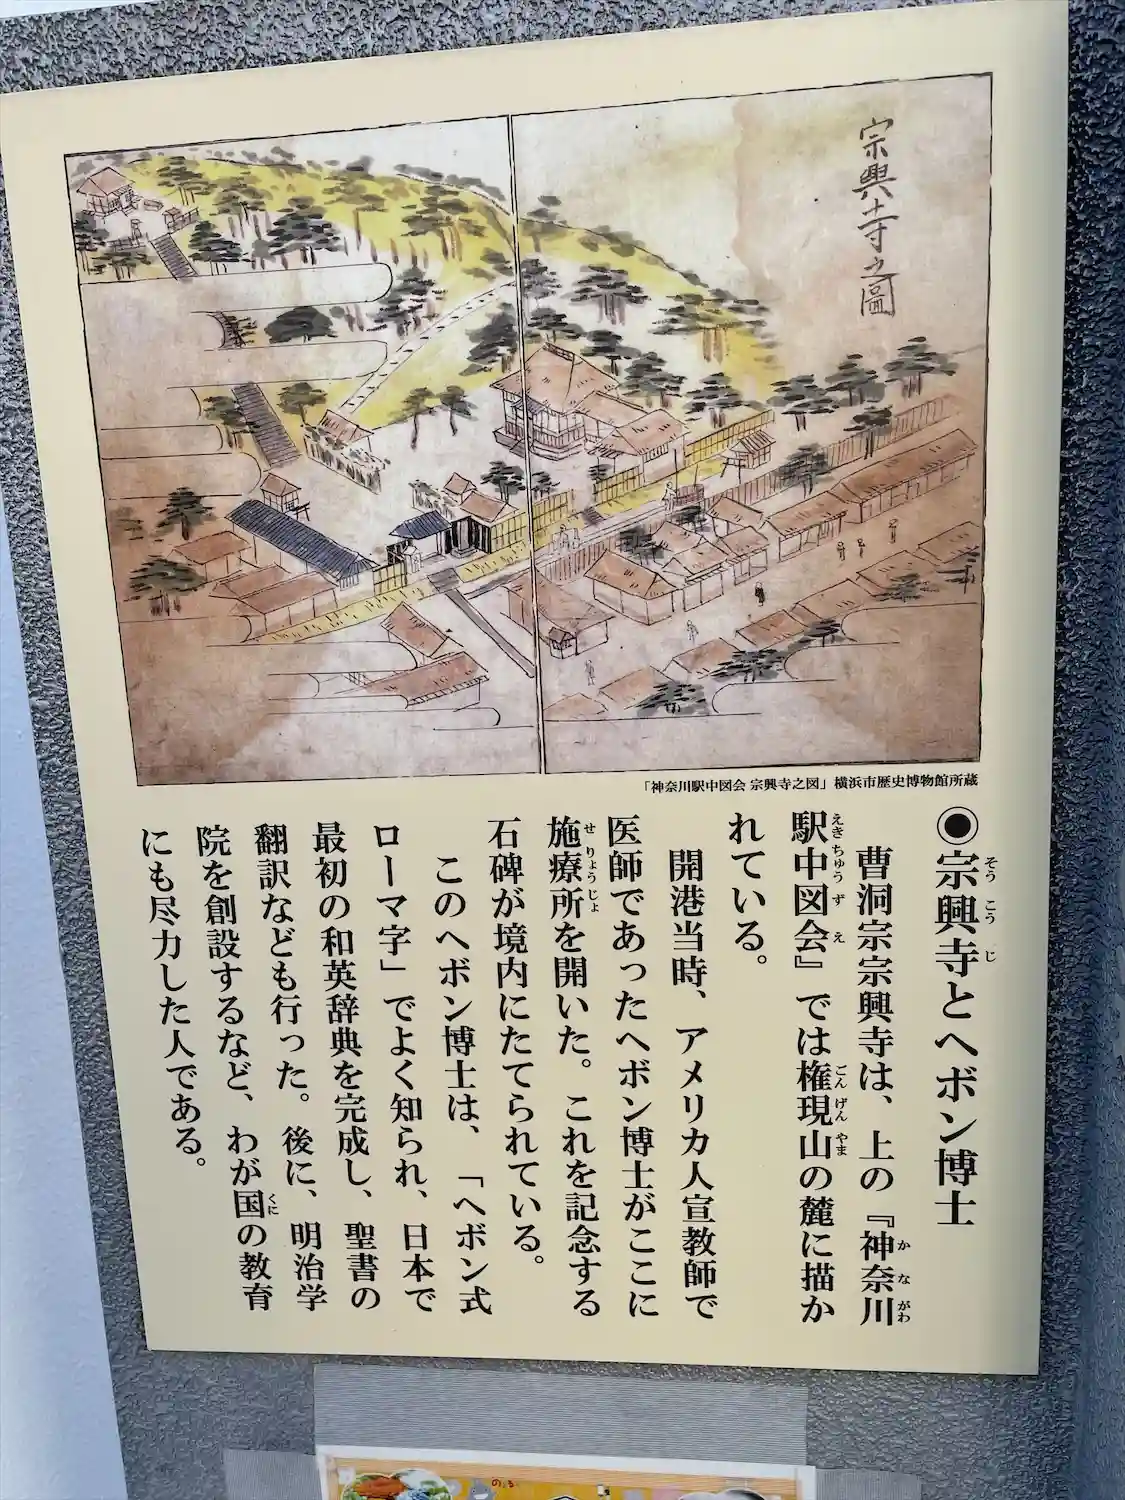 宗興寺之圖
「神奈川駅中図会 宗興寺之図」横浜市歴史博物館所蔵
◉宗興寺とヘボン博士
そうこうじ
曹洞宗宗興寺は、上の『神奈川
かながわ
駅中図会』では権現山の麓に描か
えきちゅうずえ
ごんげんやま
れている。
開港当時、アメリカ人宣教師で
医師であったヘボン博士がここに
施療所を開いた。これを記念する
せりょうじょ
石碑が境内にたてられている。
このヘボン博士は、「ヘボン式
ローマ字」でよく知られ、日本で
最初の和英辞典を完成し、聖書の
翻訳なども行った。後に、明治学
院を創設するなど、わが国の教育
くに
にも尽力した人である。